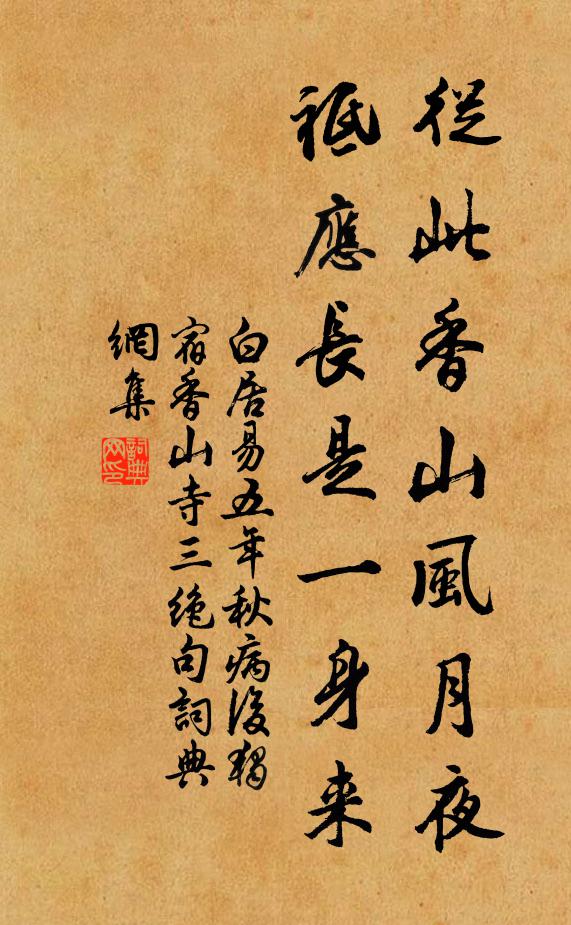 從此香山風月夜
祗應長是一身来
白居易五年秋病後獨
宿香山寺三绝句詞典
網集
詞典网印